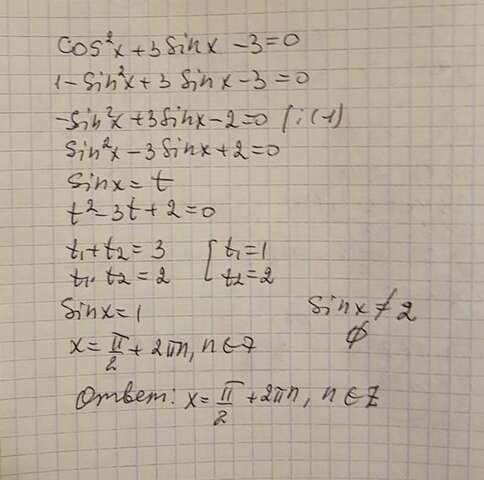 cos²x + 3 sinx - 3 = 0
1 - sin²x + 3 sinx - 3 = 0
-sin²x + 3 sinx - 2 = 0 / : (-1)
sin²x - 3 sinx + 2 = 0
sinx = t
t² - 3t + 2 = 0
t₁ + t₂ = 3 [ t₁ = 1
t₁ · t₂ = 2 t₂ = 2
sinx = 1 sinx ≠ 2
x = π/2 + 2πn, n ∈ Z ∅
Ответ: x = π/2 + 2πn, n ∈ Z